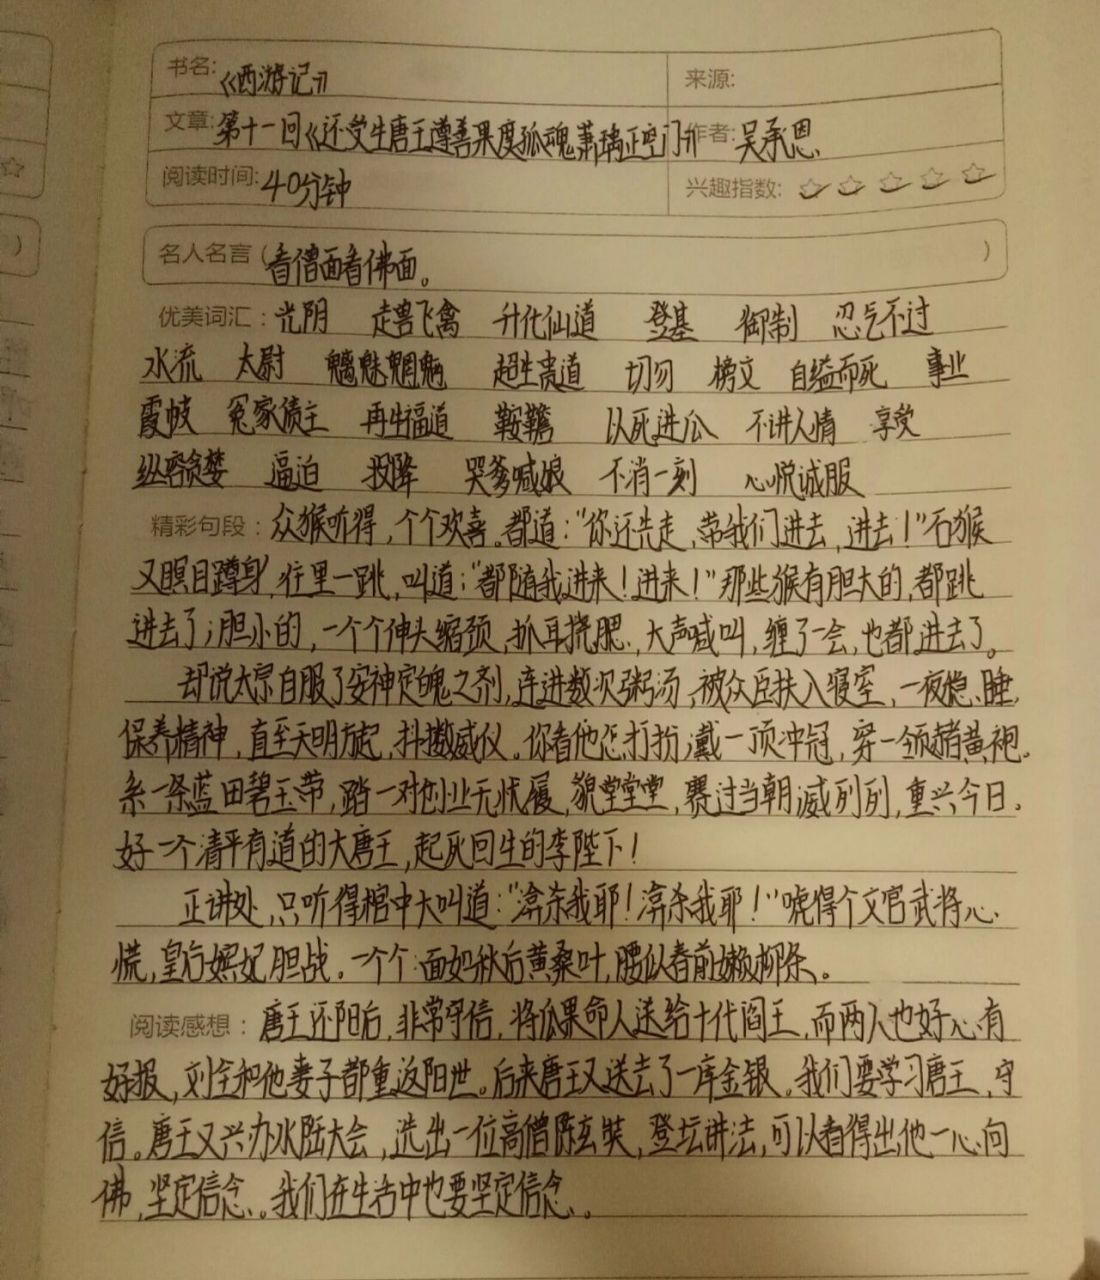 书名:《西游记》 来源:
文章:第十一回《还受生唐王遵善果度孤魂萧瑀正空门》 作者:吴承恩
阅读时间:40分钟 兴趣指数:☆☆☆☆☆
名人名言(看僧面看佛面。)
优美词汇:光阴 走兽飞禽 升化仙道 登基 御制 忍气不过
水流 太尉 魑魅魍魉 超生贵道 切勿 榜文 自缢而死 事业
霞帔 冤家债主 再生福道 鞍韂 以死进瓜 不讲人情 享受
纵容贪婪 逼迫 投降 哭爹喊娘 不消一刻 心悦诚服
精彩句段:众猴听得,个个欢喜。都道:“你还先走,带我们进去,进去!”石猴
又瞑目蹲身,往里一跳,叫道:“都随我进来!进来!”那些猴有胆大的,都跳
进去了;胆小的,一个个伸头缩颈,抓耳挠腮,大声喊叫,缠了一会,也都进去了。
却说太宗自服了安神定魄之剂,连进数次粥汤,被众臣扶入寝室,一夜稳睡,
保养精神,直至天明方起,抖擞威仪。你看他怎打扮;戴一顶冲冠,穿一领赭黄袍。
系一条蓝田碧玉带,踏一对创业无忧履,貌堂堂,赛过当朝;威列列,重兴今日。
好一个清平有道的大唐王,起死回生的李陛下!
正讲处,只听得棺中大叫道:“渰杀我耶!渰杀我耶!”唬得个文官武将心
慌,皇后嫔妃胆战。一个个:面如秋后黄桑叶,腰似春前嫩柳条。
阅读感想:唐王还阳后,非常守信,将瓜果命人送给十代阎王,而两人也好心有
好报,刘全和他妻子都重返阳世。后来唐王又送去了一库金银。我们要学习唐王,守
信。唐王又兴办水陆大会,选出一位高僧陈玄奘,登坛讲法,可以看得出他一心向
佛,坚定信念。我们在生活中也要坚定信念。